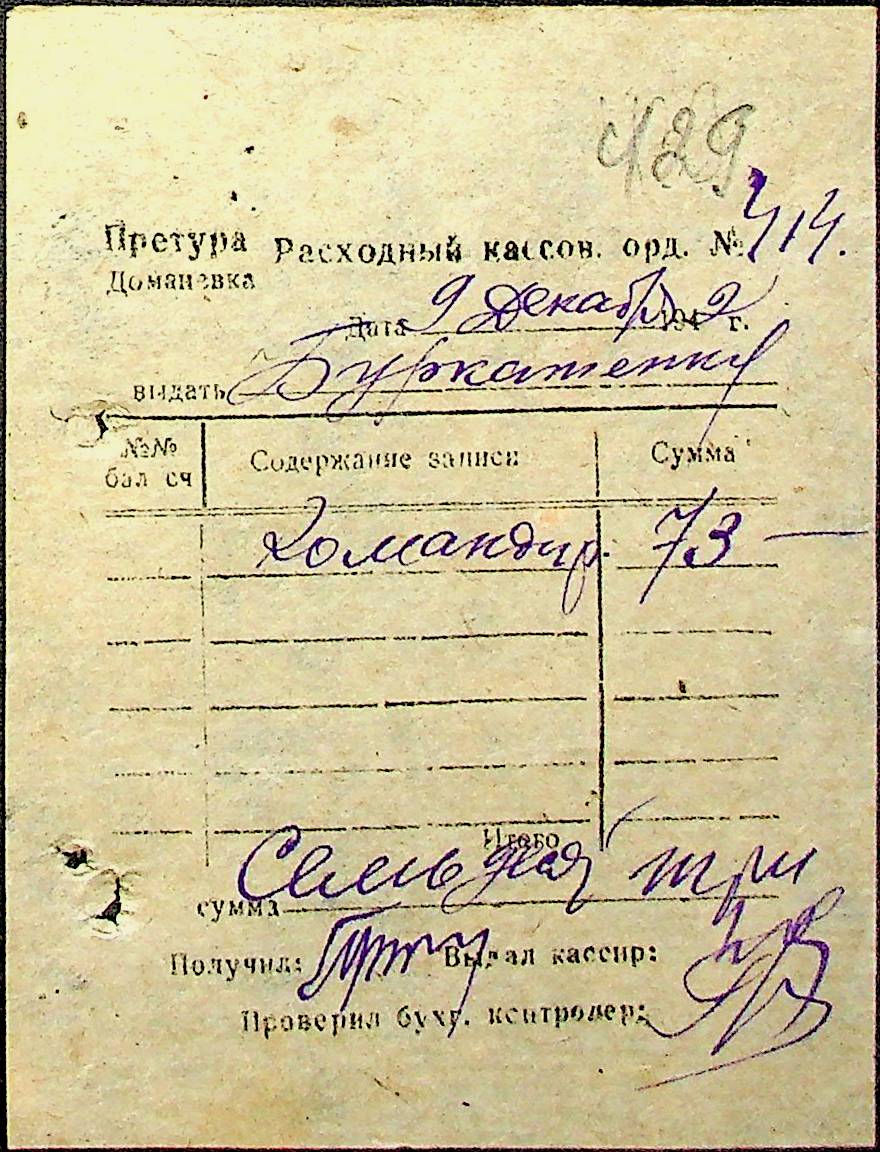 429
Претура Расходный кассов. орд. № 414.
Доманевка
Дата 9 Декабря 1942 г.
выдать Буркатенку
№№ бал сч Содержание записи Сумма
Командир. 73 —
Итого
сумма Семьдеся три
Получил: Выдал кассир:
Проверил бухг. контролер: